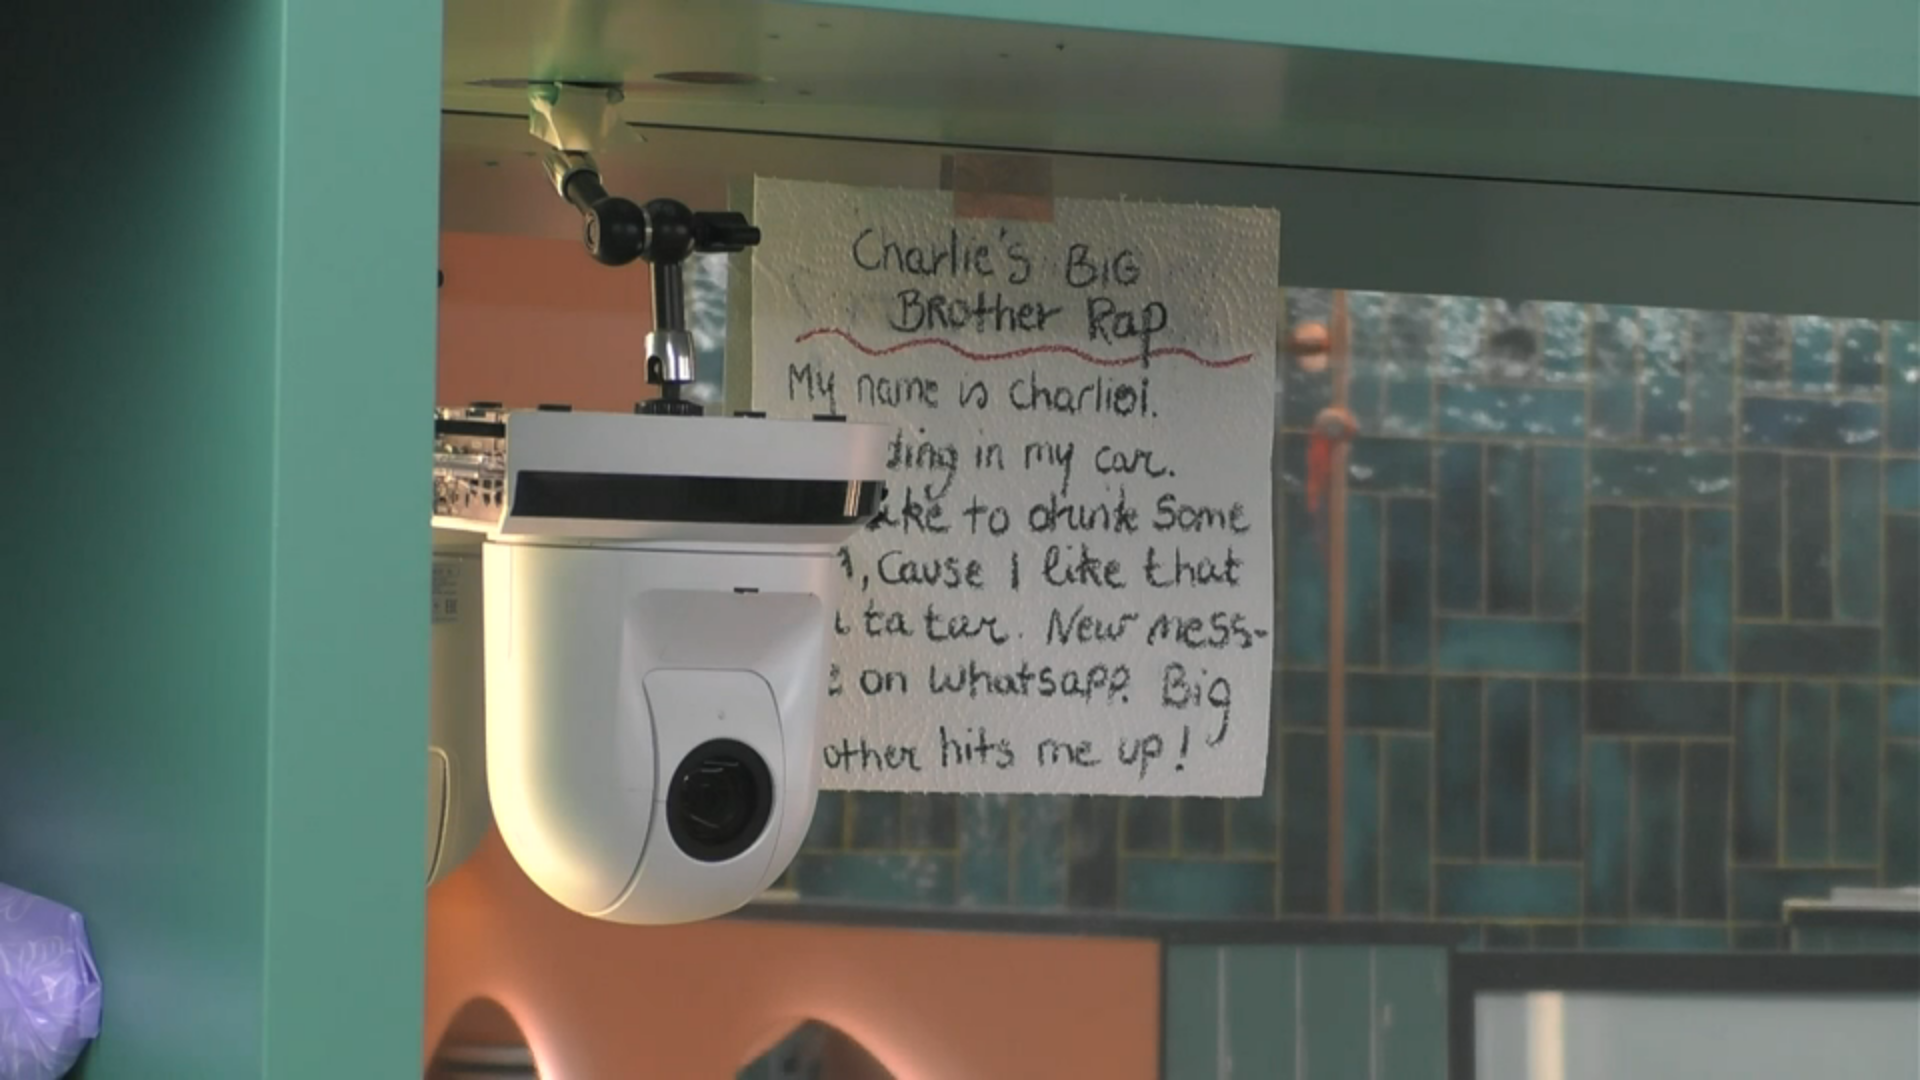 Charlie's BIG
BRother Rap
My name is Charlie!.
in my car.
to drink Some
, Cause I like that
New mess-
on whatsapp. Big
hits me up!